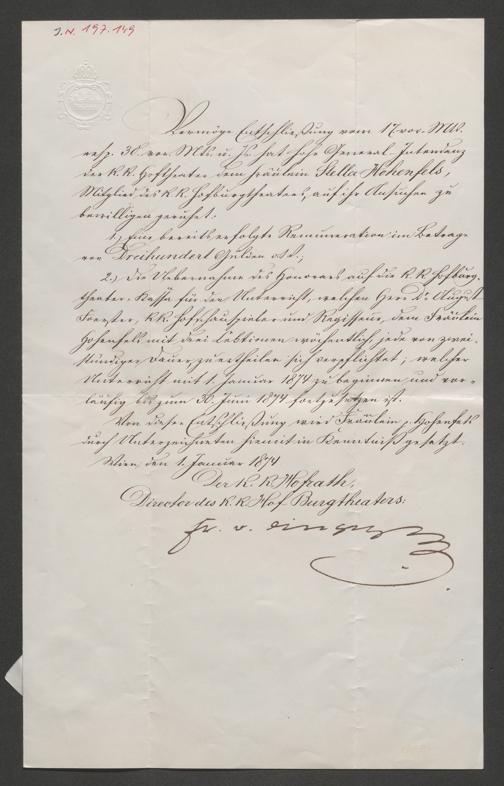 J.N. 197.149
Vermöge Entschließung vom 17. vor. Mts.
resp. 30. vor. Mts. u. Js. hat hohe General-Intendanz
der k.k. Hoftheater dem Fräulein Stella Hohenfels,
Mitglied des k.k. Hofburgtheaters, auf ihr Ansuchen zu
bewilligen geruhet:
1.) Eine bereits erfolgte Remuneration im Betrage
von Dreihundert Gulden ö.W.;
2.) Die Uebernahme des Honorars auf die k.k. Hofburg-
theater-Kassa für den Unterricht, welchen Herr Dr. August
Foerster, k.k. Hofschauspieler und Regisseur, dem Fräulein
Hohenfels mit drei Lektionen wöchentlich, jede von zwei-
stündiger Dauer, zu ertheilen sich verpflichtet, welcher
Unterricht mit 1. Januar 1874 zu beginnen und vor-
läufig bis zum 30. Juni 1874 fortzusetzen ist.
Von dieser Entschließung wird Fräulein Hohenfels
durch Unterzeichneten hiemit in Kenntniß gesetzt.
Wien, den 1. Januar 1874
Der k. k. Hofrath,
Director des k.k. Hof Burgtheaters:
Fr. v. Dingelstedt